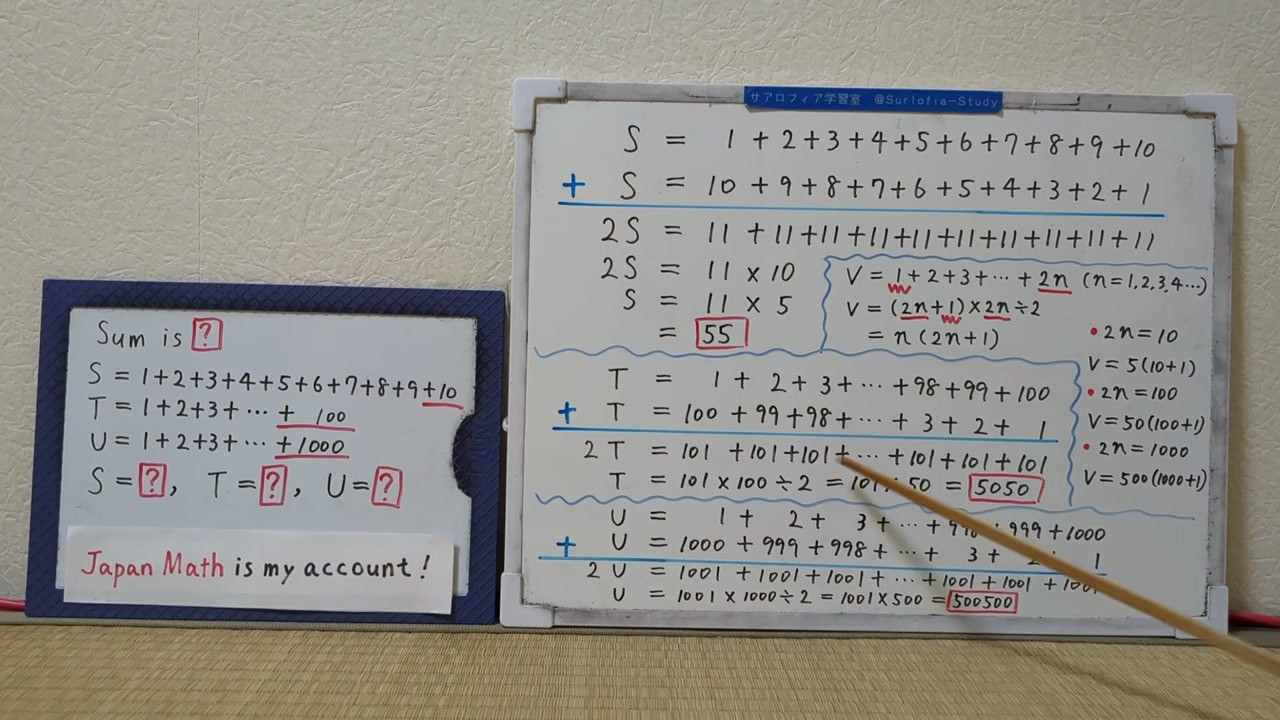 Sum is ?
S = 1+2+3+4+5+6+7+8+9+10
T = 1+2+3+ ⋯ + 100
U = 1+2+3+ ⋯ +1000
S = ?, T = ?, U = ?
Japan Math is my account!
サアロフィア学習室 @Surlofia-Study
S = 1+2+3+4+5+6+7+8+9+10
+ S = 10+9+8+7+6+5+4+3+2+1
2S = 11+11+11+11+11+11+11+11+11+11
2S = 11 × 10
S = 11 × 5
= 55
V = 1+2+3+⋯+2n (n=1,2,3,4⋯)
V = (2n+1)×2n÷2
= n(2n+1)
•2n=10
V=5(10+1)
•2n=100
V=50(100+1)
•2n=1000
V=500(1000+1)
T = 1+2+3+⋯+98+99+100
+ T = 100+99+98+⋯+3+2+1
2T = 101+101+101+⋯+101+101+101
T = 101×100÷2 = 101×50 = 5050
U = 1+2+3+⋯+ 999+1000
+ U = 1000+999+998+⋯+3+ 1
2U = 1001+1001+1001+⋯+1001+1001+1001
U = 1001×1000÷2 = 1001×500 = 500500